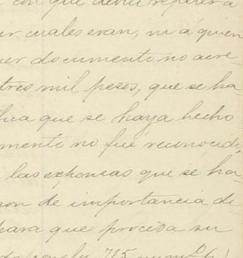 con que debia reparar á
ur cuales eran, ni á quien
uer documento no acre
tres mil pesos, que se ha
fica que se haya hecho
mento no fué reconocid
las exhonias que se ha
son de importancia di
para que proceda su
715